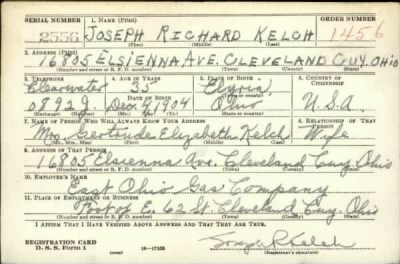 SERIAL NUMBER 1. NAME (Print) ORDER NUMBER
2556 JOSEPH RICHARD KELCH 1456
(First) (Middle) (Last)
2. ADDRESS (Print)
16805 ELSIENNA AVE. CLEVELAND CUY. OHIO
(Number and street or R. F. D. number) (Town) (County) (State)
3. TELEPHONE 4. AGE IN YEARS 5. PLACE OF BIRTH 6. COUNTRY OF CITIZENSHIP
Clearwater 35 Elyria
DATE OF BIRTH (Town or county)
0892J. Dec. 4, 1904 Ohio U.S.A.
(Exchange) (Number) (Mo.) (Day) (Yr.) (State or country)
7. NAME OF PERSON WHO WILL ALWAYS KNOW YOUR ADDRESS 8. RELATIONSHIP OF THAT PERSON
Mrs. Gertrude Elizabeth Kelch Wife
(Mr., Mrs., Miss) (First) (Middle) (Last)
9. ADDRESS OF THAT PERSON
16805 Elsienna Ave. Cleveland Cuy. Ohio
(Number and street or R. F. D. number) (Town) (County) (State)
10. EMPLOYER'S NAME
East Ohio Gas Company
11. PLACE OF EMPLOYMENT OR BUSINESS
Foot of E. 62 St. Cleveland Cuy. Ohio
(Number and street or R. F. D. number) (Town) (County) (State)
I AFFIRM THAT I HAVE VERIFIED ABOVE ANSWERS AND THAT THEY ARE TRUE.
REGISTRATION CARD
D. S. S. Form 1 16—17105 Joseph R Kelch
(Registrant's signature)